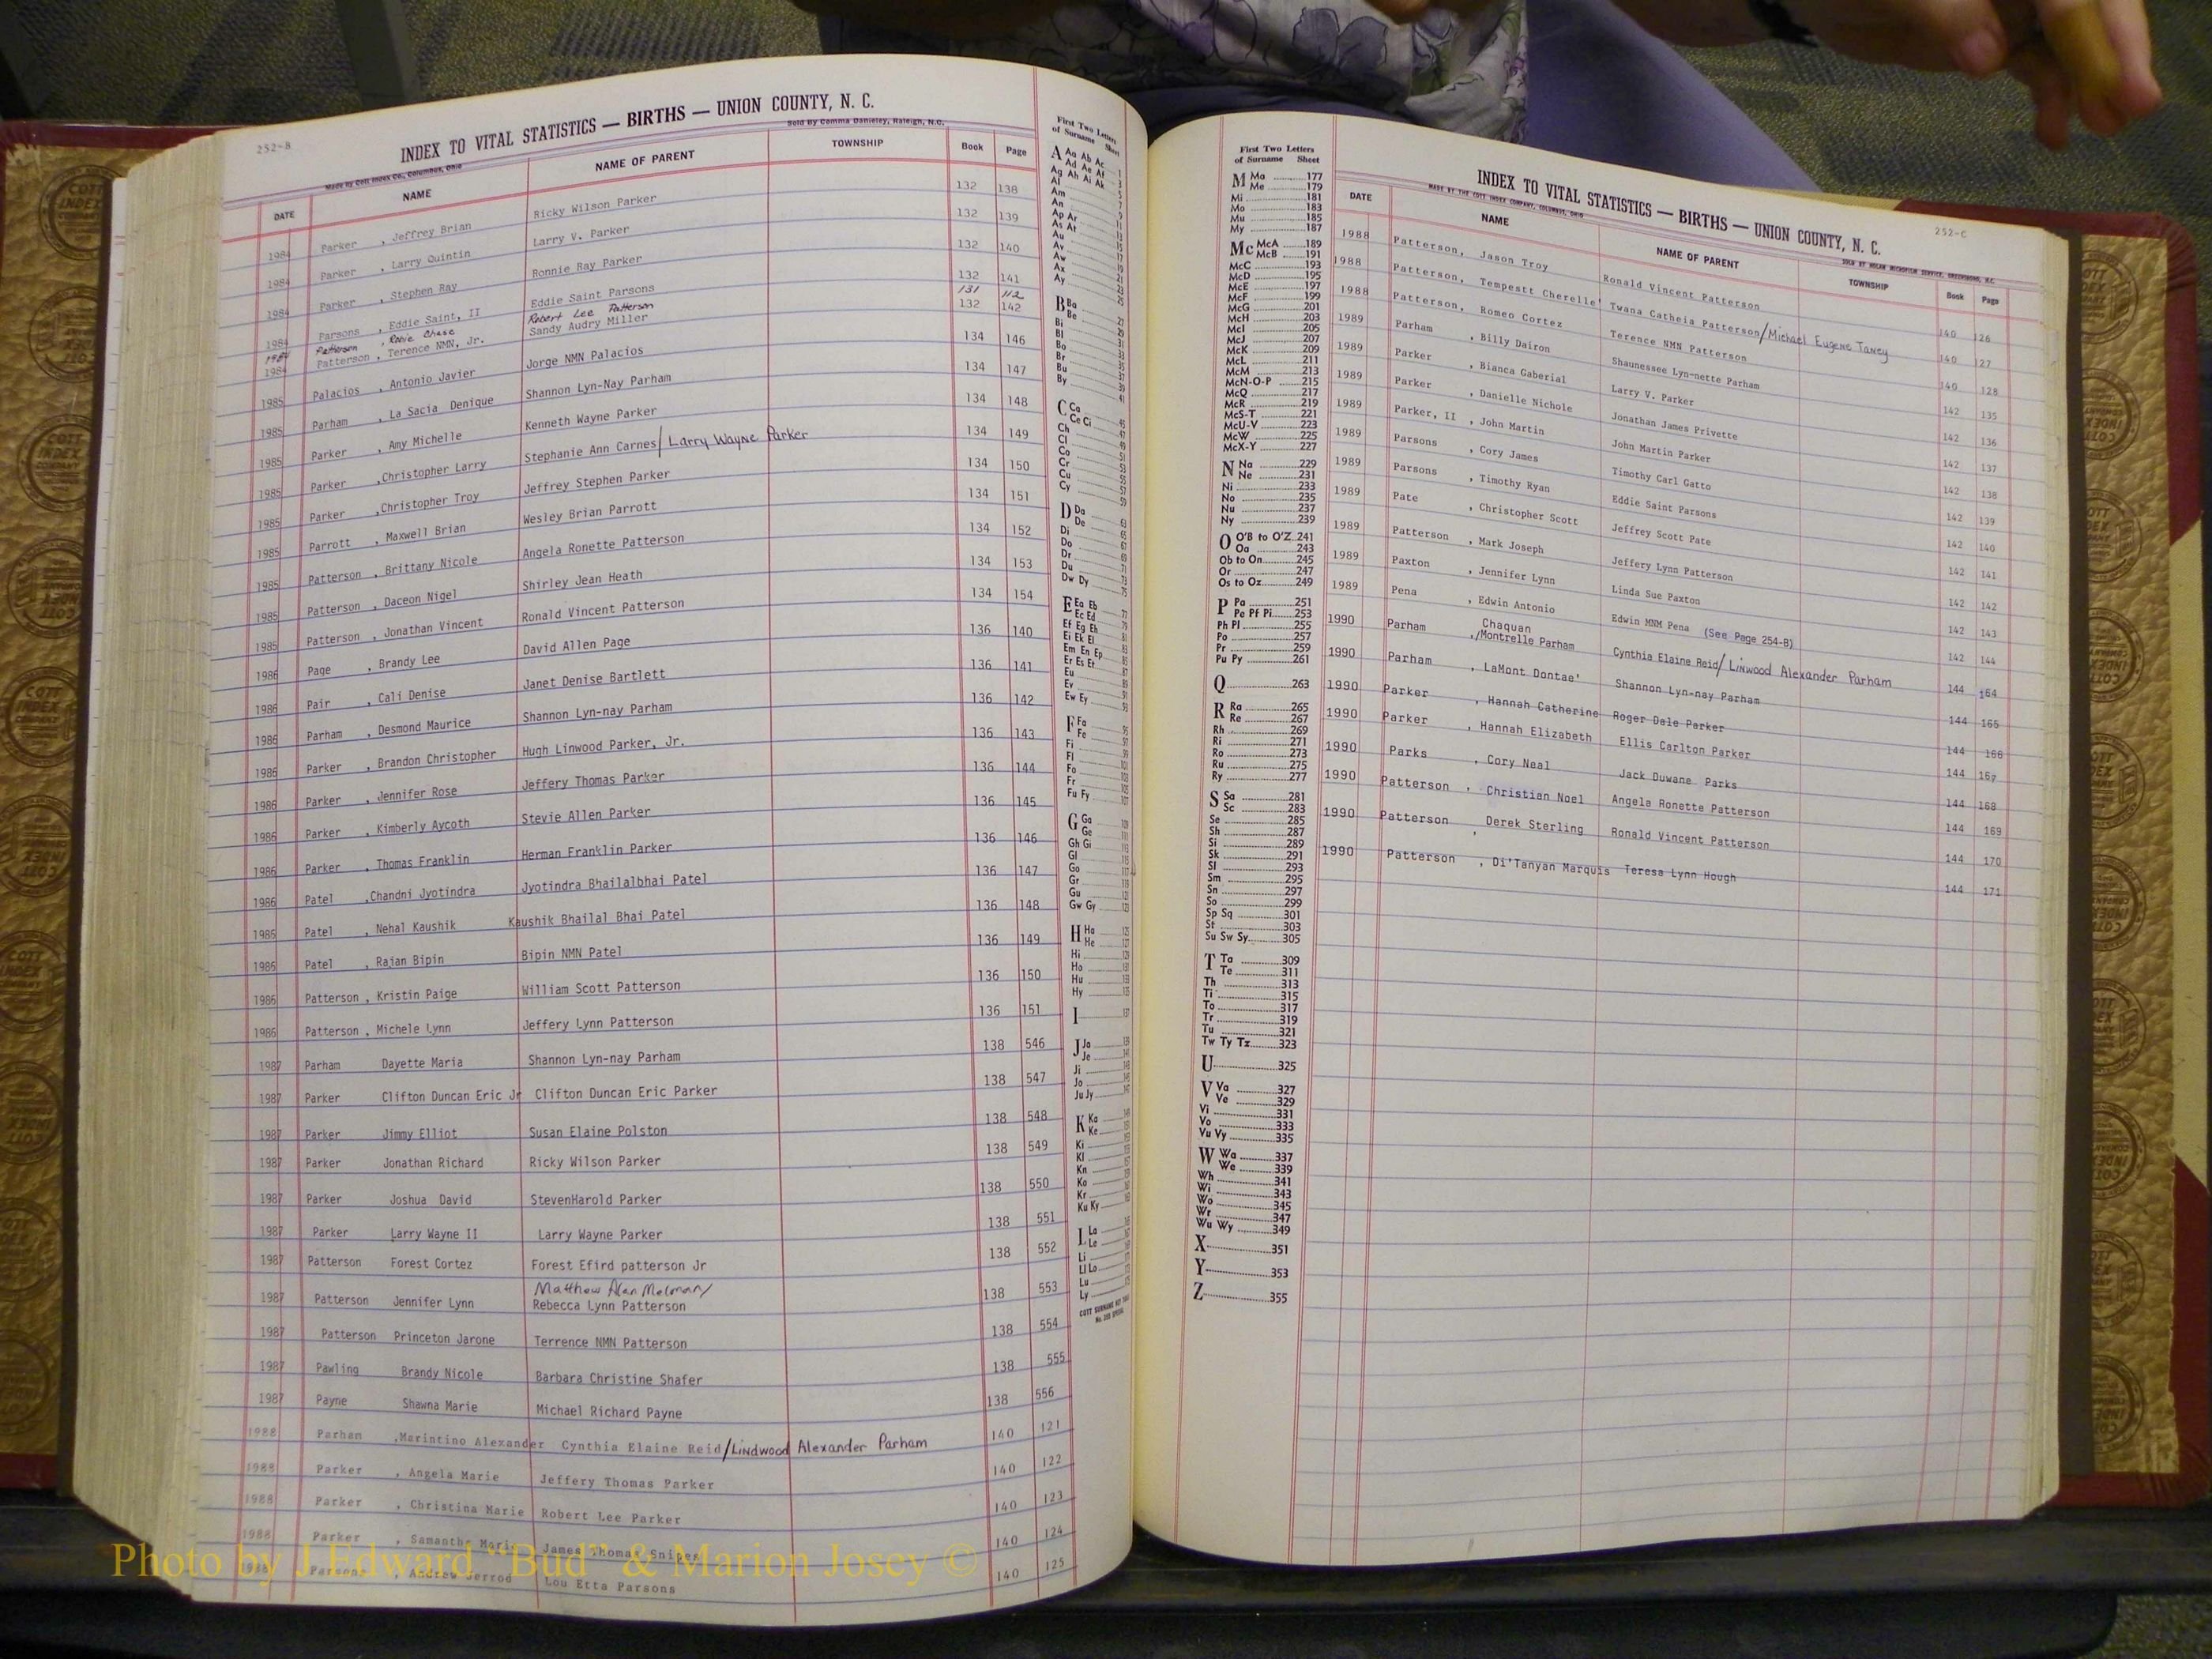 252-B
INDEX TO VITAL STATISTICS — BIRTHS — UNION COUNTY, N. C.
Made by Cott Index Co., Columbus, Ohio
Sold By Comma Danieley, Raleigh, N.C.
DATE NAME NAME OF PARENT TOWNSHIP Book Page
1984 Parker , Jeffrey Brian Ricky Wilson Parker 132 138
1984 Parker , Larry Quintin Larry V. Parker 132 139
1984 Parker , Stephen Ray Ronnie Ray Parker 132 140
1984 Parsons , Eddie Saint, II Eddie Saint Parsons 132 141
1984 Patterson , Chase Robert Lee Patterson 131 112
1984 Patterson , Terence NMN, Jr. Sandy Audry Miller 132 142
1985 Palacios , Antonio Javier Jorge NMN Palacios 134 146
1985 Parham , La Sacia Denique Shannon Lyn-Nay Parham 134 147
1985 Parker , Amy Michelle Kenneth Wayne Parker 134 148
1985 Parker ,Christopher Larry Stephanie Ann Carnes/ Larry Wayne Parker 134 149
1985 Parker ,Christopher Troy Jeffrey Stephen Parker 134 150
1985 Parrott , Maxwell Brian Wesley Brian Parrott 134 151
1985 Patterson , Brittany Nicole Angela Ronette Patterson 134 152
1985 Patterson , Daceon Nigel Shirley Jean Heath 134 153
1985 Patterson , Jonathan Vincent Ronald Vincent Patterson 134 154
1986 Page , Brandy Lee David Allen Page 136 140
1986 Pair , Cali Denise Janet Denise Bartlett 136 141
1986 Parham , Desmond Maurice Shannon Lyn-nay Parham 136 142
1986 Parker , Brandon Christopher Hugh Linwood Parker, Jr. 136 143
1986 Parker , Jennifer Rose Jeffery Thomas Parker 136 144
1986 Parker , Kimberly Aycoth Stevie Allen Parker 136 145
1986 Parker , Thomas Franklin Herman Franklin Parker 136 146
1986 Patel ,Chandni Jyotindra Jyotindra Bhailalbhai Patel 136 147
1986 Patel , Nehal Kaushik Kaushik Bhailal Bhai Patel 136 148
1986 Patel , Rajan Bipin Bipin NMN Patel 136 149
1986 Patterson , Kristin Paige William Scott Patterson 136 150
1986 Patterson , Michele Lynn Jeffery Lynn Patterson 136 151
1987 Parham Dayette Maria Shannon Lyn-nay Parham 138 546
1987 Parker Clifton Duncan Eric Jr Clifton Duncan Eric Parker 138 547
1987 Parker Jimmy Elliot Susan Elaine Polston 138 548
1987 Parker Jonathan Richard Ricky Wilson Parker 138 549
1987 Parker Joshua David StevenHarold Parker 138 550
1987 Parker Larry Wayne II Larry Wayne Parker 138 551
1987 Patterson Forest Cortez Forest Efird patterson Jr 138 552
Matthew Alan
1987 Patterson Jennifer Lynn Rebecca Lynn Patterson 138 553
1987 Patterson Princeton Jarone Terrence NMN Patterson 138 554
1987 Pawling Brandy Nicole Barbara Christine Shafer 138 555
1987 Payne Shawna Marie Michael Richard Payne 138 556
1988 Parham ,Marintino Alexander Cynthia Elaine Reid/Lindwood Alexander Parham 140 121
1988 Parker , Angela Marie Jeffery Thomas Parker 140 122
1988 Parker , Christina Marie Robert Lee Parker 140 123
1988 Parker , Samantha James Thomas Snipes 140 124
Parsons , Andrew Jerrod Lou Etta Parsons 140 125
First Two Letters
of Surname Sheet
A Aa Ab Ac
Ad Ae Af
Ag Ah Ai Ak
Al
Am
An
Ap Ar
As At
Au
Av
Aw
Ax
Ay
B Ba
Be
Bi
Bl
Bo
Br
Bu
By
C Ca
Ce Ci
Ch
Cl
Co
Cr
Cu
Cy
D Da
De
Di
Do
Dr
Du
Dw Dy
E Ea Eb
Ec Ed
Ef Eg Eh
Ei Ek El
Em En Ep
Er Es Et
Eu
Ev
Ew Ey
F Fa
Fe
Fi
Fl
Fo
Fr
Fu Fy
G Ga
Ge
Gh Gi
Gl
Go
Gr
Gu
Gw Gy
H Ha
He
Hi
Ho
Hu
Hy
I
J Ja
Je
Ji
Jo
Ju Jy
K Ka
Ke
Ki
Kl
Kn
Ko
Kr
Ku Ky
L La
Le
Li
Ll Lo
Lu
Ly
First Two Letters
of Surname Sheet
M Ma 177
Me 179
Mi 181
Mo 183
Mu 185
My 187
Mc McA 189
McB 191
McC 193
McD 195
McE 197
McF 199
McG 201
McH 203
McI 205
McJ 207
McK 209
McL 211
McM 213
McN-O-P 215
McQ 217
McR 219
McS-T 221
McU-V 223
McW 225
McX-Y 227
N Na 229
Ne 231
Ni 233
No 235
Nu 237
Ny 239
O O'B to O'Z 241
Oa 243
Ob to On 245
Or 247
Os to Oz 249
P Pa 251
Pe Pf Pi 253
Ph Pl 255
Po 257
Pr 259
Pu Py 261
Q 263
R Ra 265
Re 267
Rh 269
Ri 271
Ro 273
Ru 275
Ry 277
S Sa 281
Sc 283
Se 285
Sh 287
Si 289
Sk 291
Sl 293
Sm 295
Sn 297
So 299
Sp Sq 301
St 303
Su Sw Sy 305
T Ta 309
Te 311
Th 313
Ti 315
To 317
Tr 319
Tu 321
Tw Ty Tz 323
U 325
V Va 327
Ve 329
Vi 331
Vo 333
Vu Vy 335
W Wa 337
We 339
Wh 341
Wi 343
Wo 345
Wr 347
Wu Wy 349
X 351
Y 353
Z 355
252-C
INDEX TO VITAL STATISTICS — BIRTHS — UNION COUNTY, N. C.
MADE BY THE COTT INDEX COMPANY, COLUMBUS, OHIO
DATE NAME NAME OF PARENT TOWNSHIP Book Page
1988 Patterson, Jason Troy Ronald Vincent Patterson 140 126
1988 Patterson, Tempestt Cherelle' Twana Catheia Patterson/Michael Eugene Taney 140 127
1988 Patterson, Romeo Cortez Terence NMN Patterson 140 128
1989 Parham , Billy Dairon Shaunessee Lyn-nette Parham 142 135
1989 Parker , Bianca Gaberial Larry V. Parker 142 136
1989 Parker , Danielle Nichole Jonathan James Privette 142 137
1989 Parker, II , John Martin John Martin Parker 142 138
1989 Parsons , Cory James Timothy Carl Gatto 142 139
1989 Parsons , Timothy Ryan Eddie Saint Parsons 142 140
1989 Pate , Christopher Scott Jeffrey Scott Pate 142 141
1989 Patterson , Mark Joseph Jeffery Lynn Patterson 142 142
1989 Paxton , Jennifer Lynn Linda Sue Paxton 142 143
1989 Pena , Edwin Antonio Edwin MNM Pena (See Page 254-B) 142 144
1990 Parham Chaquan ,/Montrelle Parham Cynthia Elaine Reid/ Linwood Alexander Parham 144 164
1990 Parham , LaMont Dontae' Shannon Lyn-nay Parham 144 165
1990 Parker , Hannah Catherine Roger Dale Parker 144 166
1990 Parker , Hannah Elizabeth Ellis Carlton Parker 144 167
1990 Parks , Cory Neal Jack Duwane Parks 144 168
1990 Patterson , Christian Noel Angela Ronette Patterson 144 169
1990 Patterson , Derek Sterling Ronald Vincent Patterson 144 170
1990 Patterson , Di'Tanyan Marquis Teresa Lynn Hough 144 171
Photo by J.Edward "Bud" & Marion Josey ©